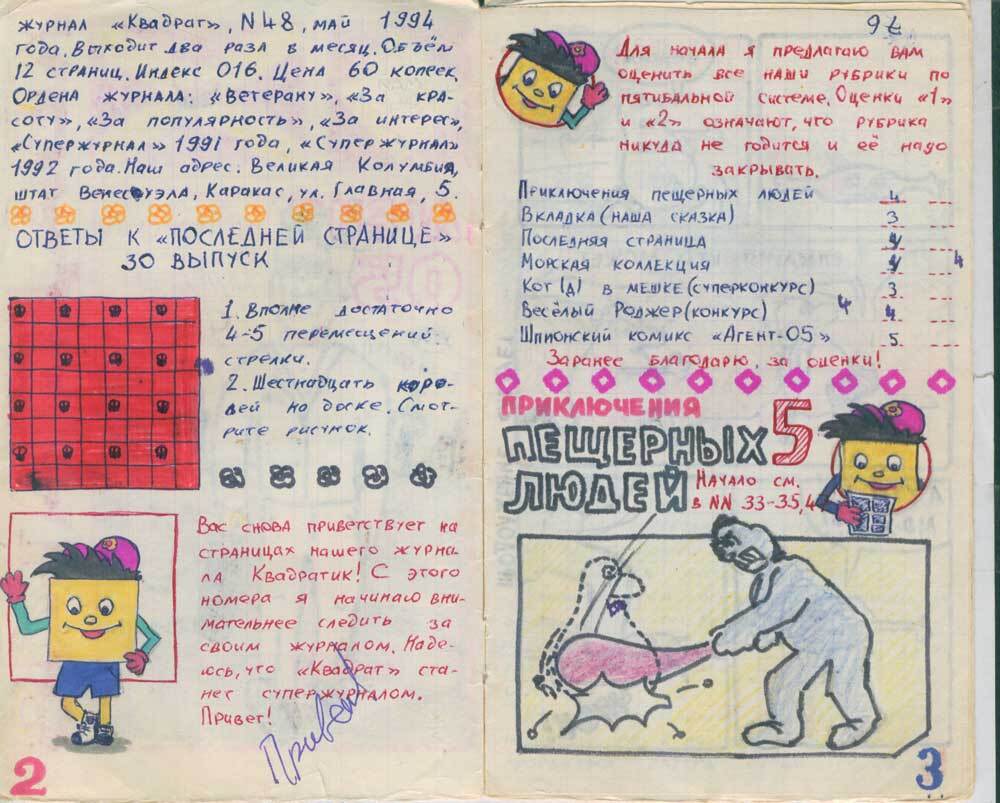 ЖУРНАЛ «КВАДРАТ», N 48, МАЙ 1994
ГОДА. ВЫХОДИТ ДВА РАЗА В МЕСЯЦ. ОБЪЁМ
12 СТРАНИЦ. ИНДЕКС 016. ЦЕНА 60 КОПЕЕК.
ОРДЕНА ЖУРНАЛА: «ВЕТЕРАНУ», «ЗА КРА-
СОТУ», «ЗА ПОПУЛЯРНОСТЬ», «ЗА ИНТЕРЕС»,
«СУПЕРЖУРНАЛ» 1991 ГОДА, «СУПЕРЖУРНАЛ»
1992 ГОДА. НАШ АДРЕС. ВЕЛИКАЯ КОЛУМБИЯ,
ШТАТ ВЕНЕСУЭЛА, КАРАКАС, УЛ. ГЛАВНАЯ, 5.
ОТВЕТЫ К «ПОСЛЕДНЕЙ СТРАНИЦЕ»
30 ВЫПУСК
1. ВПОЛНЕ ДОСТАТОЧНО
4-5 ПЕРЕМЕЩЕНИЙ
СТРЕЛКИ.
2. ШЕСТНАДЦАТЬ КОРО-
ЛЕЙ НА ДОСКЕ. СМОТ-
РИТЕ РИСУНОК.
ВАС СНОВА ПРИВЕТСТВУЕТ НА
СТРАНИЦАХ НАШЕГО ЖУРНА
ЛА КВАДРАТИК! С ЭТОГО
НОМЕРА Я НАЧИНАЮ ВНИ-
МАТЕЛЬНЕЕ СЛЕДИТЬ ЗА
СВОИМ ЖУРНАЛОМ. НАДЕ-
ЮСЬ, ЧТО «КВАДРАТ» СТА-
НЕТ СУПЕРЖУРНАЛОМ.
ПРИВЕТ!
Привет
2
ДЛЯ НАЧАЛА Я ПРЕДЛАГАЮ ВАМ
ОЦЕНИТЬ ВСЕ НАШИ РУБРИКИ ПО
ПЯТИБАЛЬНОЙ СИСТЕМЕ. ОЦЕНКИ «1»
И «2» ОЗНАЧАЮТ, ЧТО РУБРИКА
НИКУДА НЕ ГОДИТСЯ И ЕЁ НАДО
ЗАКРЫВАТЬ.
ПРИКЛЮЧЕНИЯ ПЕЩЕРНЫХ ЛЮДЕЙ 4
ВКЛАДКА (НАША СКАЗКА) 3
ПОСЛЕДНЯЯ СТРАНИЦА 4
МОРСКАЯ КОЛЛЕКЦИЯ 4 4
КОТ (Д) В МЕШКЕ (СУПЕРКОНКУРС) 3
ВЕСЁЛЫЙ РОДЖЕР (КОНКУРС) 4 4
ШПИОНСКИЙ КОМИКС «АГЕНТ-05» 5
ЗАРАНЕЕ БЛАГОДАРЮ ЗА ОЦЕНКИ!
ПРИКЛЮЧЕНИЯ
ПЕЩЕРНЫХ 5
ЛЮДЕЙ
НАЧАЛО СМ.
В NN 33-35,4
3